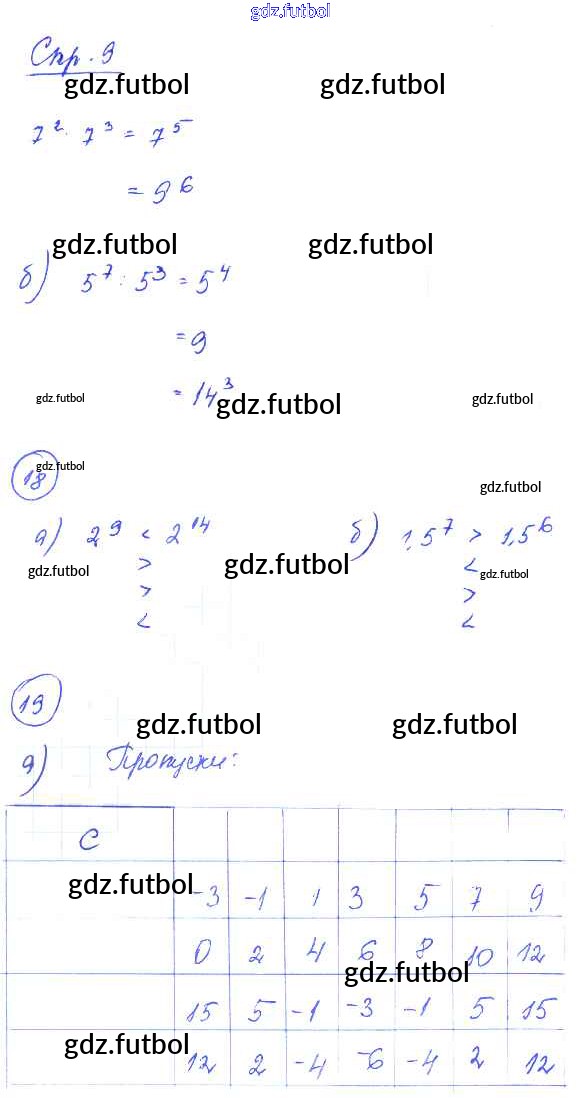 gdz.futbol
Стр. 9
gdz.futbol gdz.futbol
7² · 7³ = 7⁵
= 9⁶
gdz.futbol gdz.futbol
б) 5⁷ : 5³ = 5⁴
= 9
gdz.futbol = 14³ gdz.futbol gdz.futbol
gdz.futbol
18 gdz.futbol
а) 2⁹ < 2¹⁴ б) 1,5⁷ > 1,5⁶
gdz.futbol > gdz.futbol < gdz.futbol
> >
< <
19
gdz.futbol gdz.futbol
а) Пропуски:
С
gdz.futbol -3 -1 1 3 5 7 9
0 2 4 6 8 10 12
gdz.futbol
15 5 -1 -3 -1 5 15
gdz.futbol
12 2 -4 -6 -4 2 12